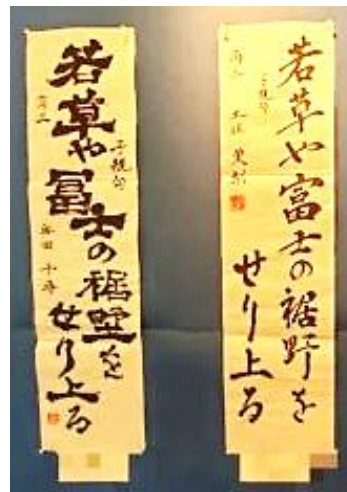 若草や富士の裾野を
せり上る
子規句
若草や富士の裾野を
せり上る
子規句